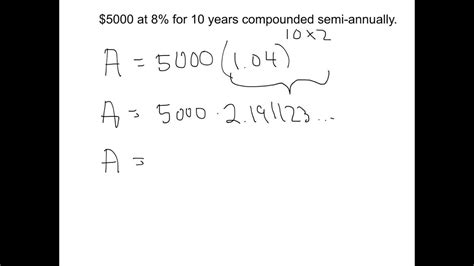 $5000 at 8% for 10 years compounded semi-annually.
A = 5000 (1.04)^10×2
A = 5000 · 2.191123...
A =